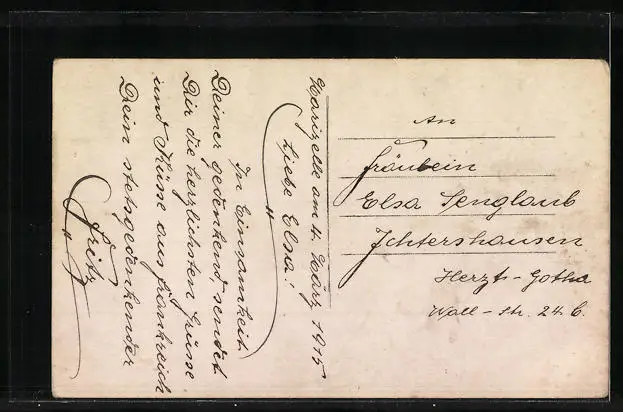 Harizelle am 4. März 1915
Liebe Elsa!
In Einsamkeit
Deiner gedenkend sendet
Dir die herzlichsten Grüsse
und Küsse aus Frankreich
Dein stetsgedenkender
Fritz
An
Fräulein
Elsa Senglaub
Ichtershausen
Herzt-Gotha
Wall-Str. 24 b.